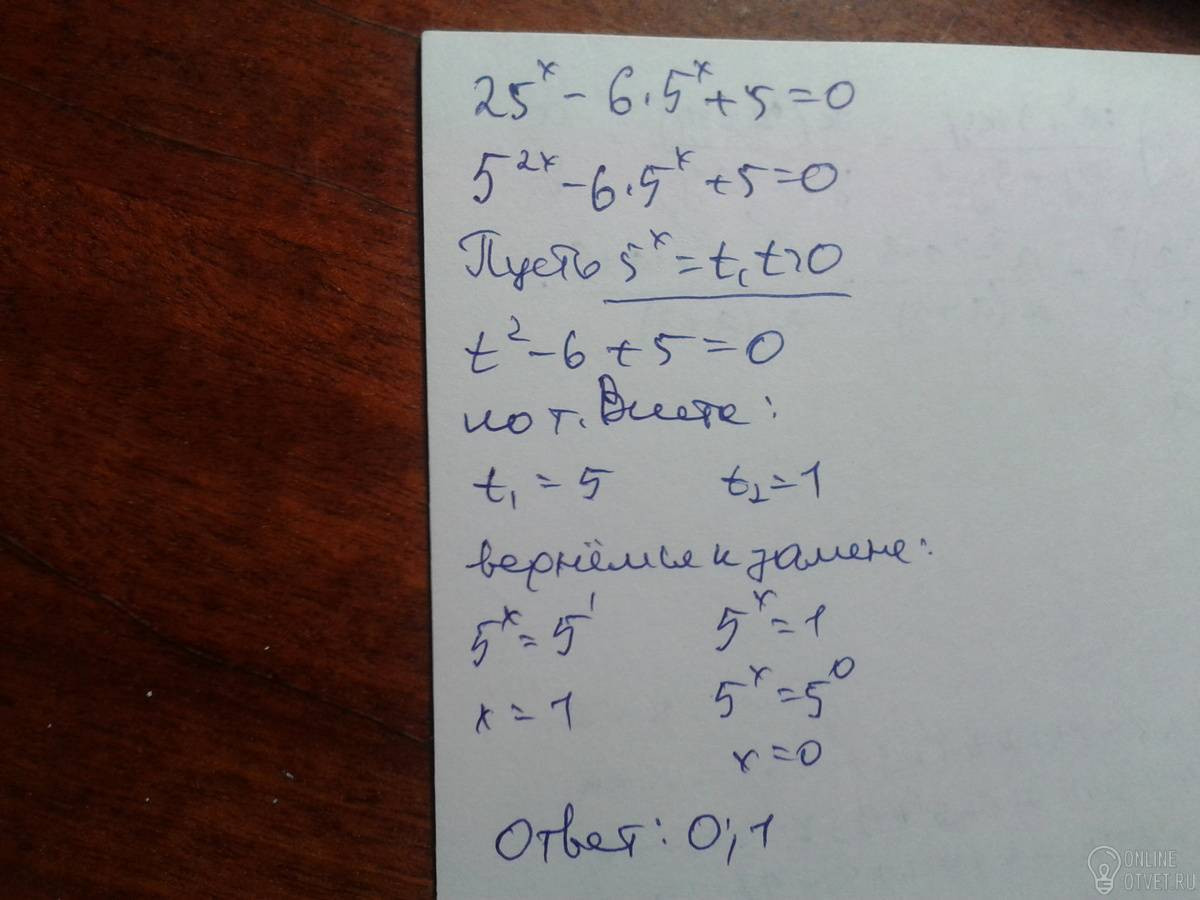 25ˣ - 6·5ˣ + 5 = 0
5²ˣ - 6·5ˣ + 5 = 0
Пусть 5ˣ = t, t>0
t² - 6 + 5 = 0
по т. Виета:
t₁ = 5 t₂ = 1
вернёмся к замене:
5ˣ = 5¹ 5ˣ = 1
x = 1 5ˣ = 5⁰
x = 0
Ответ: 0; 1
ONLINE
OTVET.RU